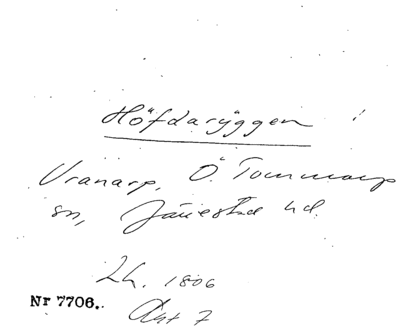 Höfdaryggen
Vranarp, Ö. Tommarp
sn, Järrestad hd.
Lh. 1806
Nr 7706.
Akt 7